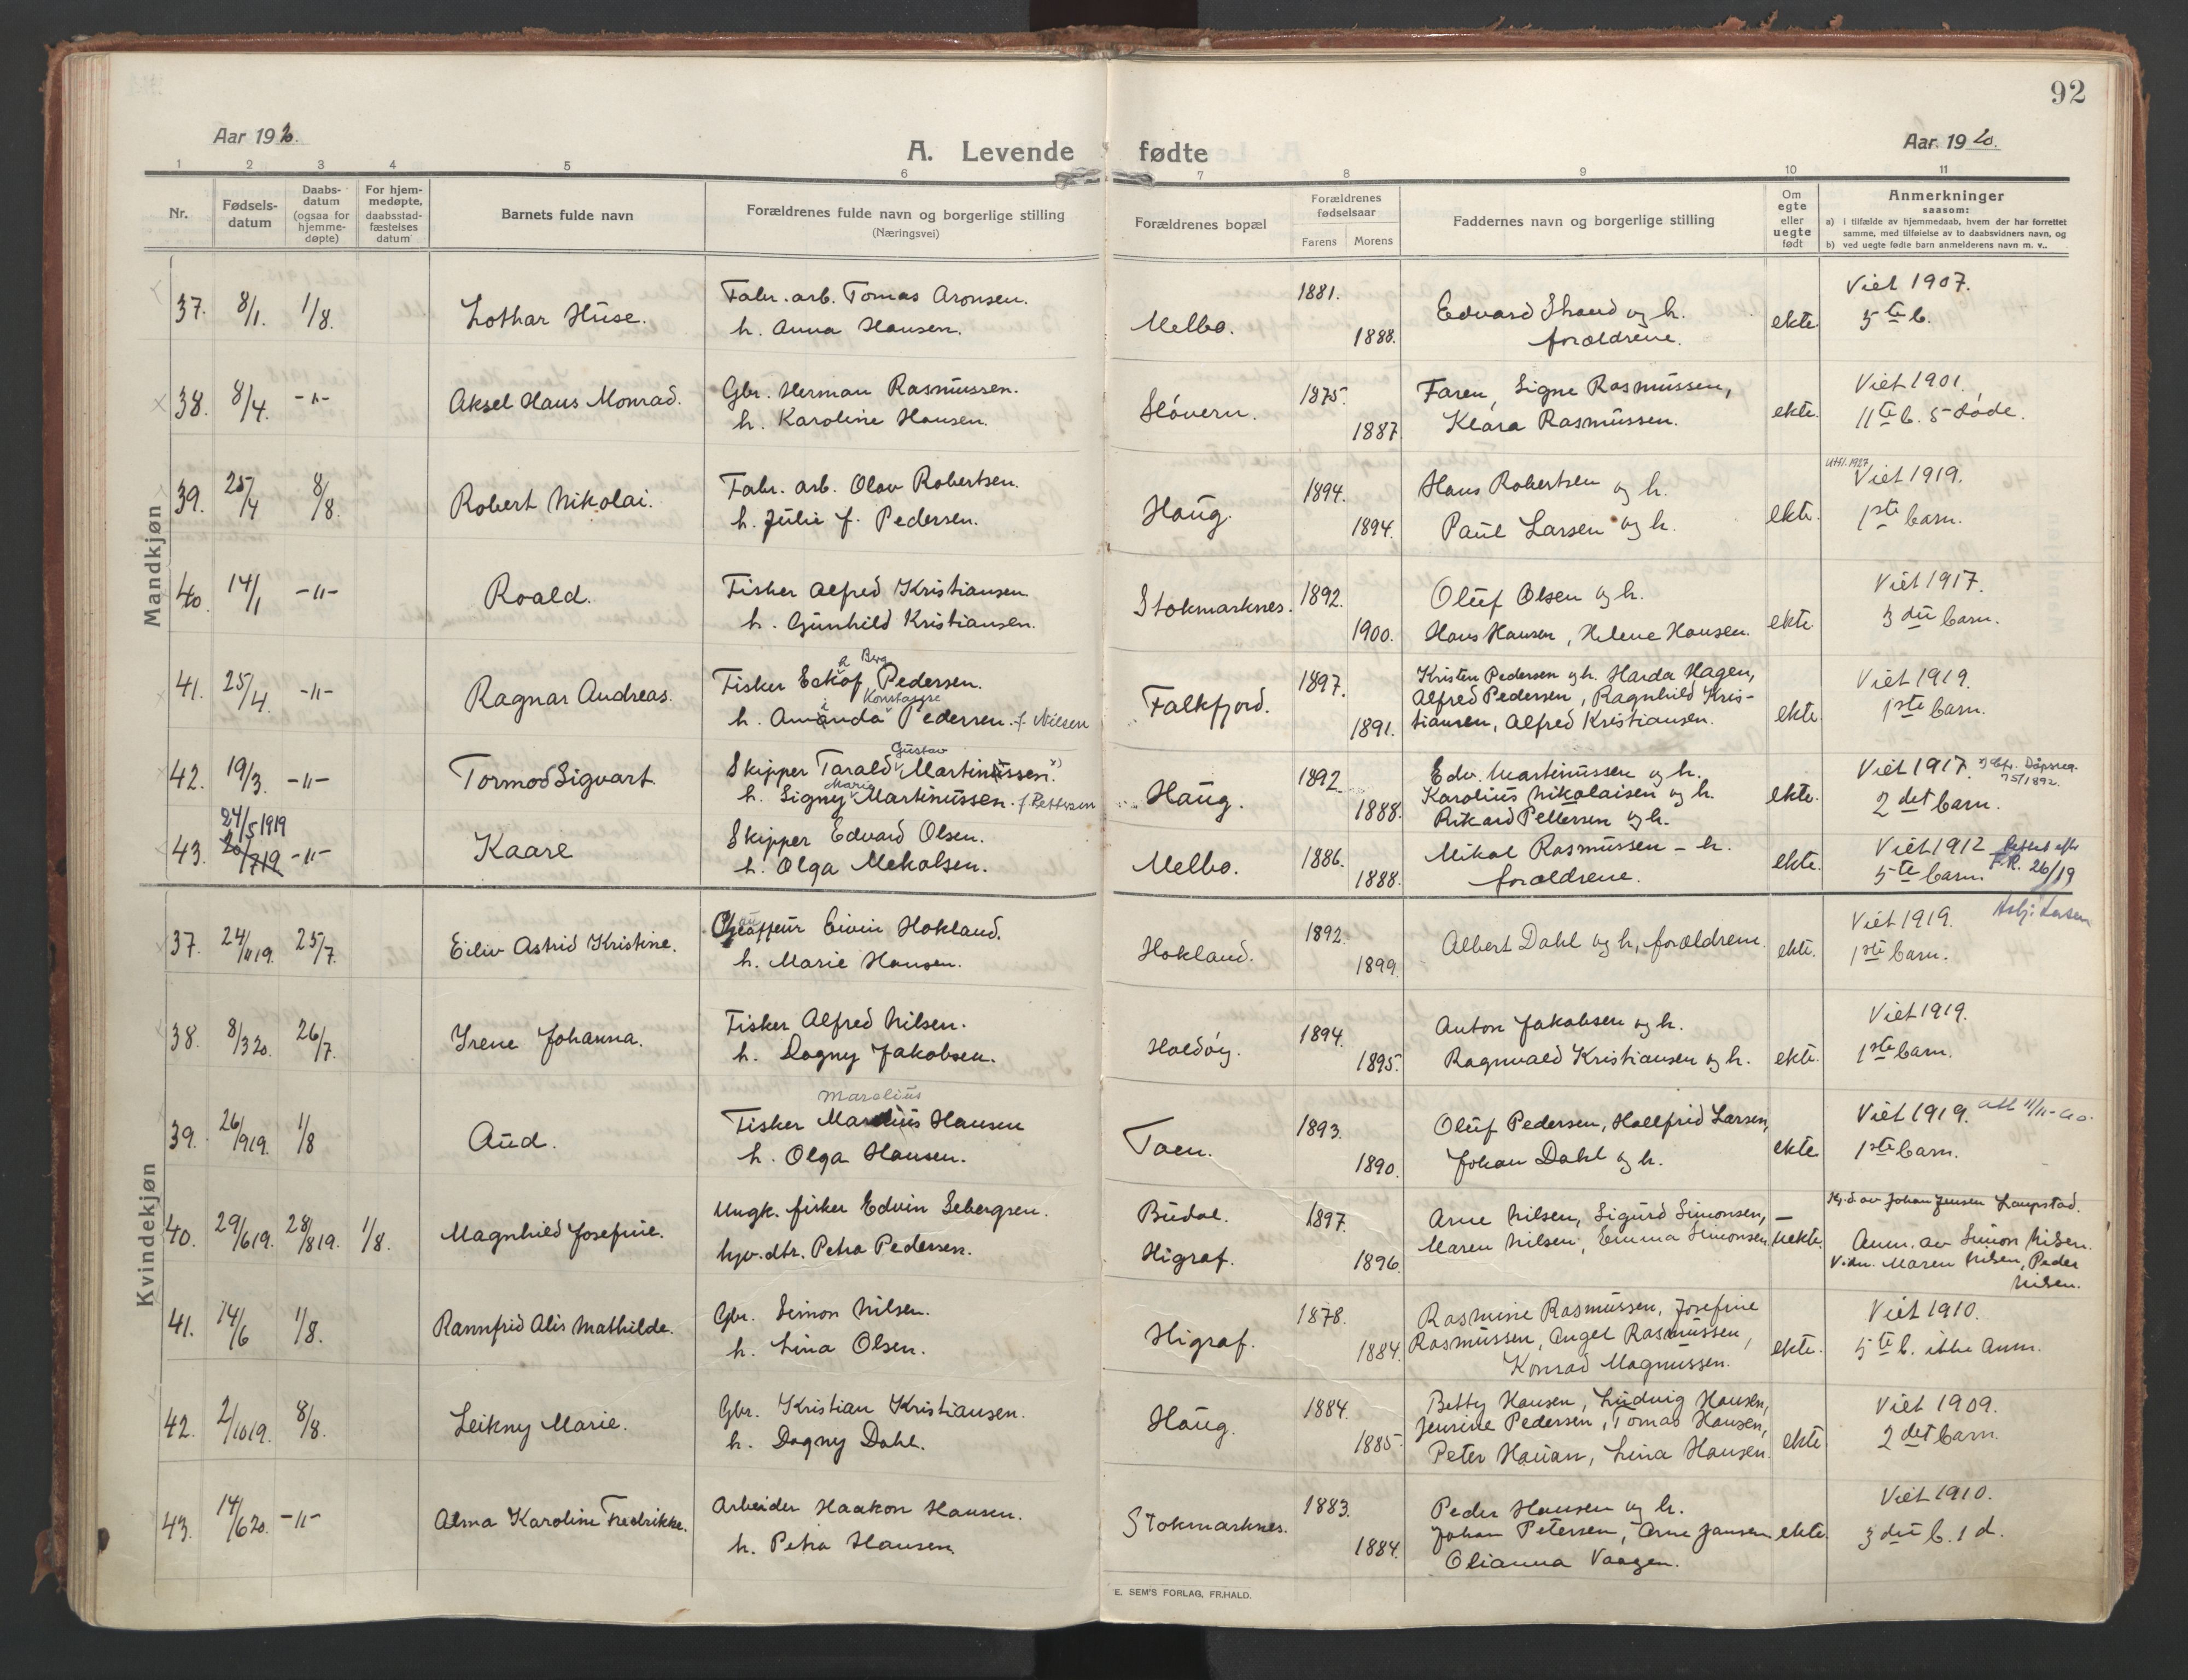 92
Aar 1920.
A. Levende fødte
Aar 1920.
1 2 3 4 5 6 7 8 9 10 11
Nr.
Fødsels-
datum
Daabs-
datum
(ogsaa for
hjemme-
døpte)
For hjem-
medøpte,
daabsstad-
fæstelses
datum
Barnets fulde navn
Forældrenes fulde navn og borgerlige stilling
(Næringsvei)
Forældrenes bopæl
Forældrenes
fødselsaar
Farens Morens
Faddernes navn og borgerlige stilling
Om
egte
eller
uegte
født
Anmerkninger
saasom:
a) i tilfælde av hjemmedaab, hvem der har forrettet
samme, med tilføielse av to daabsvidners navn, og
b) ved uegte fødte barn anmelderens navn m. v..
Mandkjøn
37. 8/1. 1/8. Lothar Huse. Fabr. arb. Tomas Aronsen. Melbo. 1881. Edvard Strand og h. ekte. Viet 1907.
h. Anna Hansen. 1888. forældrene. 5te b.
38. 8/4. -"- Aksel Hans Monrad. Gbr. Herman Rasmussen. 1875. Faren, Signe Rasmussen, ekte. Viet 1901.
h. Karoline Hansen. 1887. Klara Rasmussen. 11te b. 5 døde.
39. 25/4 8/8. Robert Nikolai. Fabr. arb. Olav Robertsen. Haug. 1894. Hans Robertsen og h. ekte. Utfl. 1927 Viet 1919.
h. Julie f. Pedersen. 1894. Paul Larsen og h. 1ste barn.
40. 14/1 -"- Roald. Fisker Alfred Kristiansen Stokmarknes. 1892. Oluf Olsen og h. ekte. Viet 1917.
h. Gunhild Kristiansen. 1900. Hans Hansen, Helene Hansen. 3die barn.
41. 25/4. -"- Ragnar Andreas. Fisker Pedersen. Falkfjord. 1897. Kristen Pedersen og h. Harda Hagen, ekte. Viet 1919.
Berg
Alfred Pedersen, Ragnhild Kris-
h. Amanda Pedersen. f. Nilsen 1891. tiansen, Alfred Kristiansen. 1ste barn.
42. 19/3. -"- Tormod Sigvart. Skipper Tarald Gustav Martinussen. Haug. 1892. Edv. Martinussen og h. ekte. Viet 1917.
h. Signy Marie Martinussen. f. Pettersen 1888. Karolius Nikolaisen og h. 2det barn.
Rikard Pettersen og h.
24/5 1919
43. 20/7 19 -"- Kaare Skipper Edvard Olsen. Melbo. 1886. Mikal Rasmussen - h. ekte. Viet 1912 Rettet efter
h. Olga Mehalsen. 1888. forældrene. 5te barn. F.R. 26/19
Kvindekjøn
37. 24/11 19. 25/7. Eiliv Astrid Kristine. Chauffeur Eivin Hokland. Hokland. 1892. Albert Dahl og h, forældrene. ekte. Viet 1919. Asbj. Larsen
h. Marie Hansen. 1899. 1ste barn.
38. 8/3 20. 26/7. Irene Johanna. Fisker Alfred Nilsen. Haldøy. 1894. Anton Jakobsen og h. ekte. Viet 1919.
h. Dagny Jakobsen. 1895. Ragnvald Kristiansen og h. 1ste barn.
Maralius
39. 26/9 19. 1/8 Aud. Fisker Hansen Taen. 1893. Oluf Pedersen, Hallfrid Larsen, ekte Viet 1919.
h. Olga Hansen. 1890. Johan Dahl og h. 1ste barn.
40. 29/6 19. 28/8 19. 1/8. Magnhild Josefine. Ungk. fisker Edvin Sebergsen. Budal. 1897. Arne Nilsen, Sigurd Simonsen, uekte. Kj.d av Johan Jensen Laupstad.
hjv. dtr. Petra Pedersen. Higraf. 1896. Maren Nilsen, Emma Simonsen Anm. av Simon Nilsen.
Vidn. Maren Nilsen, Peder
Nilsen.
41. 14/6 1/8. Rannfrid Alis Mathilde. Gbr. Simon Nilsen. Higraf. 1878. Rasmine Rasmussen, Josefine ekte. Viet 1910.
h. Lina Olsen. 1884. Rasmussen, Angel Rasmussen, 5te b. ikke anm.
Konrad Magnussen.
42. 2/10 19. 8/8. Leikny Marie. Gbr. Kristian Kristiansen. Haug. 1884. Betty Hansen, Ludvig Hansen, ekte Viet 1909.
h. Dagny Dahl. 1885. Jensine Pedersen, Tomas Hansen, 2det barn.
Peter Hauan, Lina Hansen.
43. 14/6 20. -"- Alma Karoline Fredrikke. Arbeider Haakon Hansen. Stokmarknes. 1883. Peder Hansen og h. ekte. Viet 1910.
h. Petra Hansen 1884. Johan Petersen, Arne Jansen 3die b. 1 d.
Olianna Vaagen.
E. SEM'S FORLAG, FR.HALD.